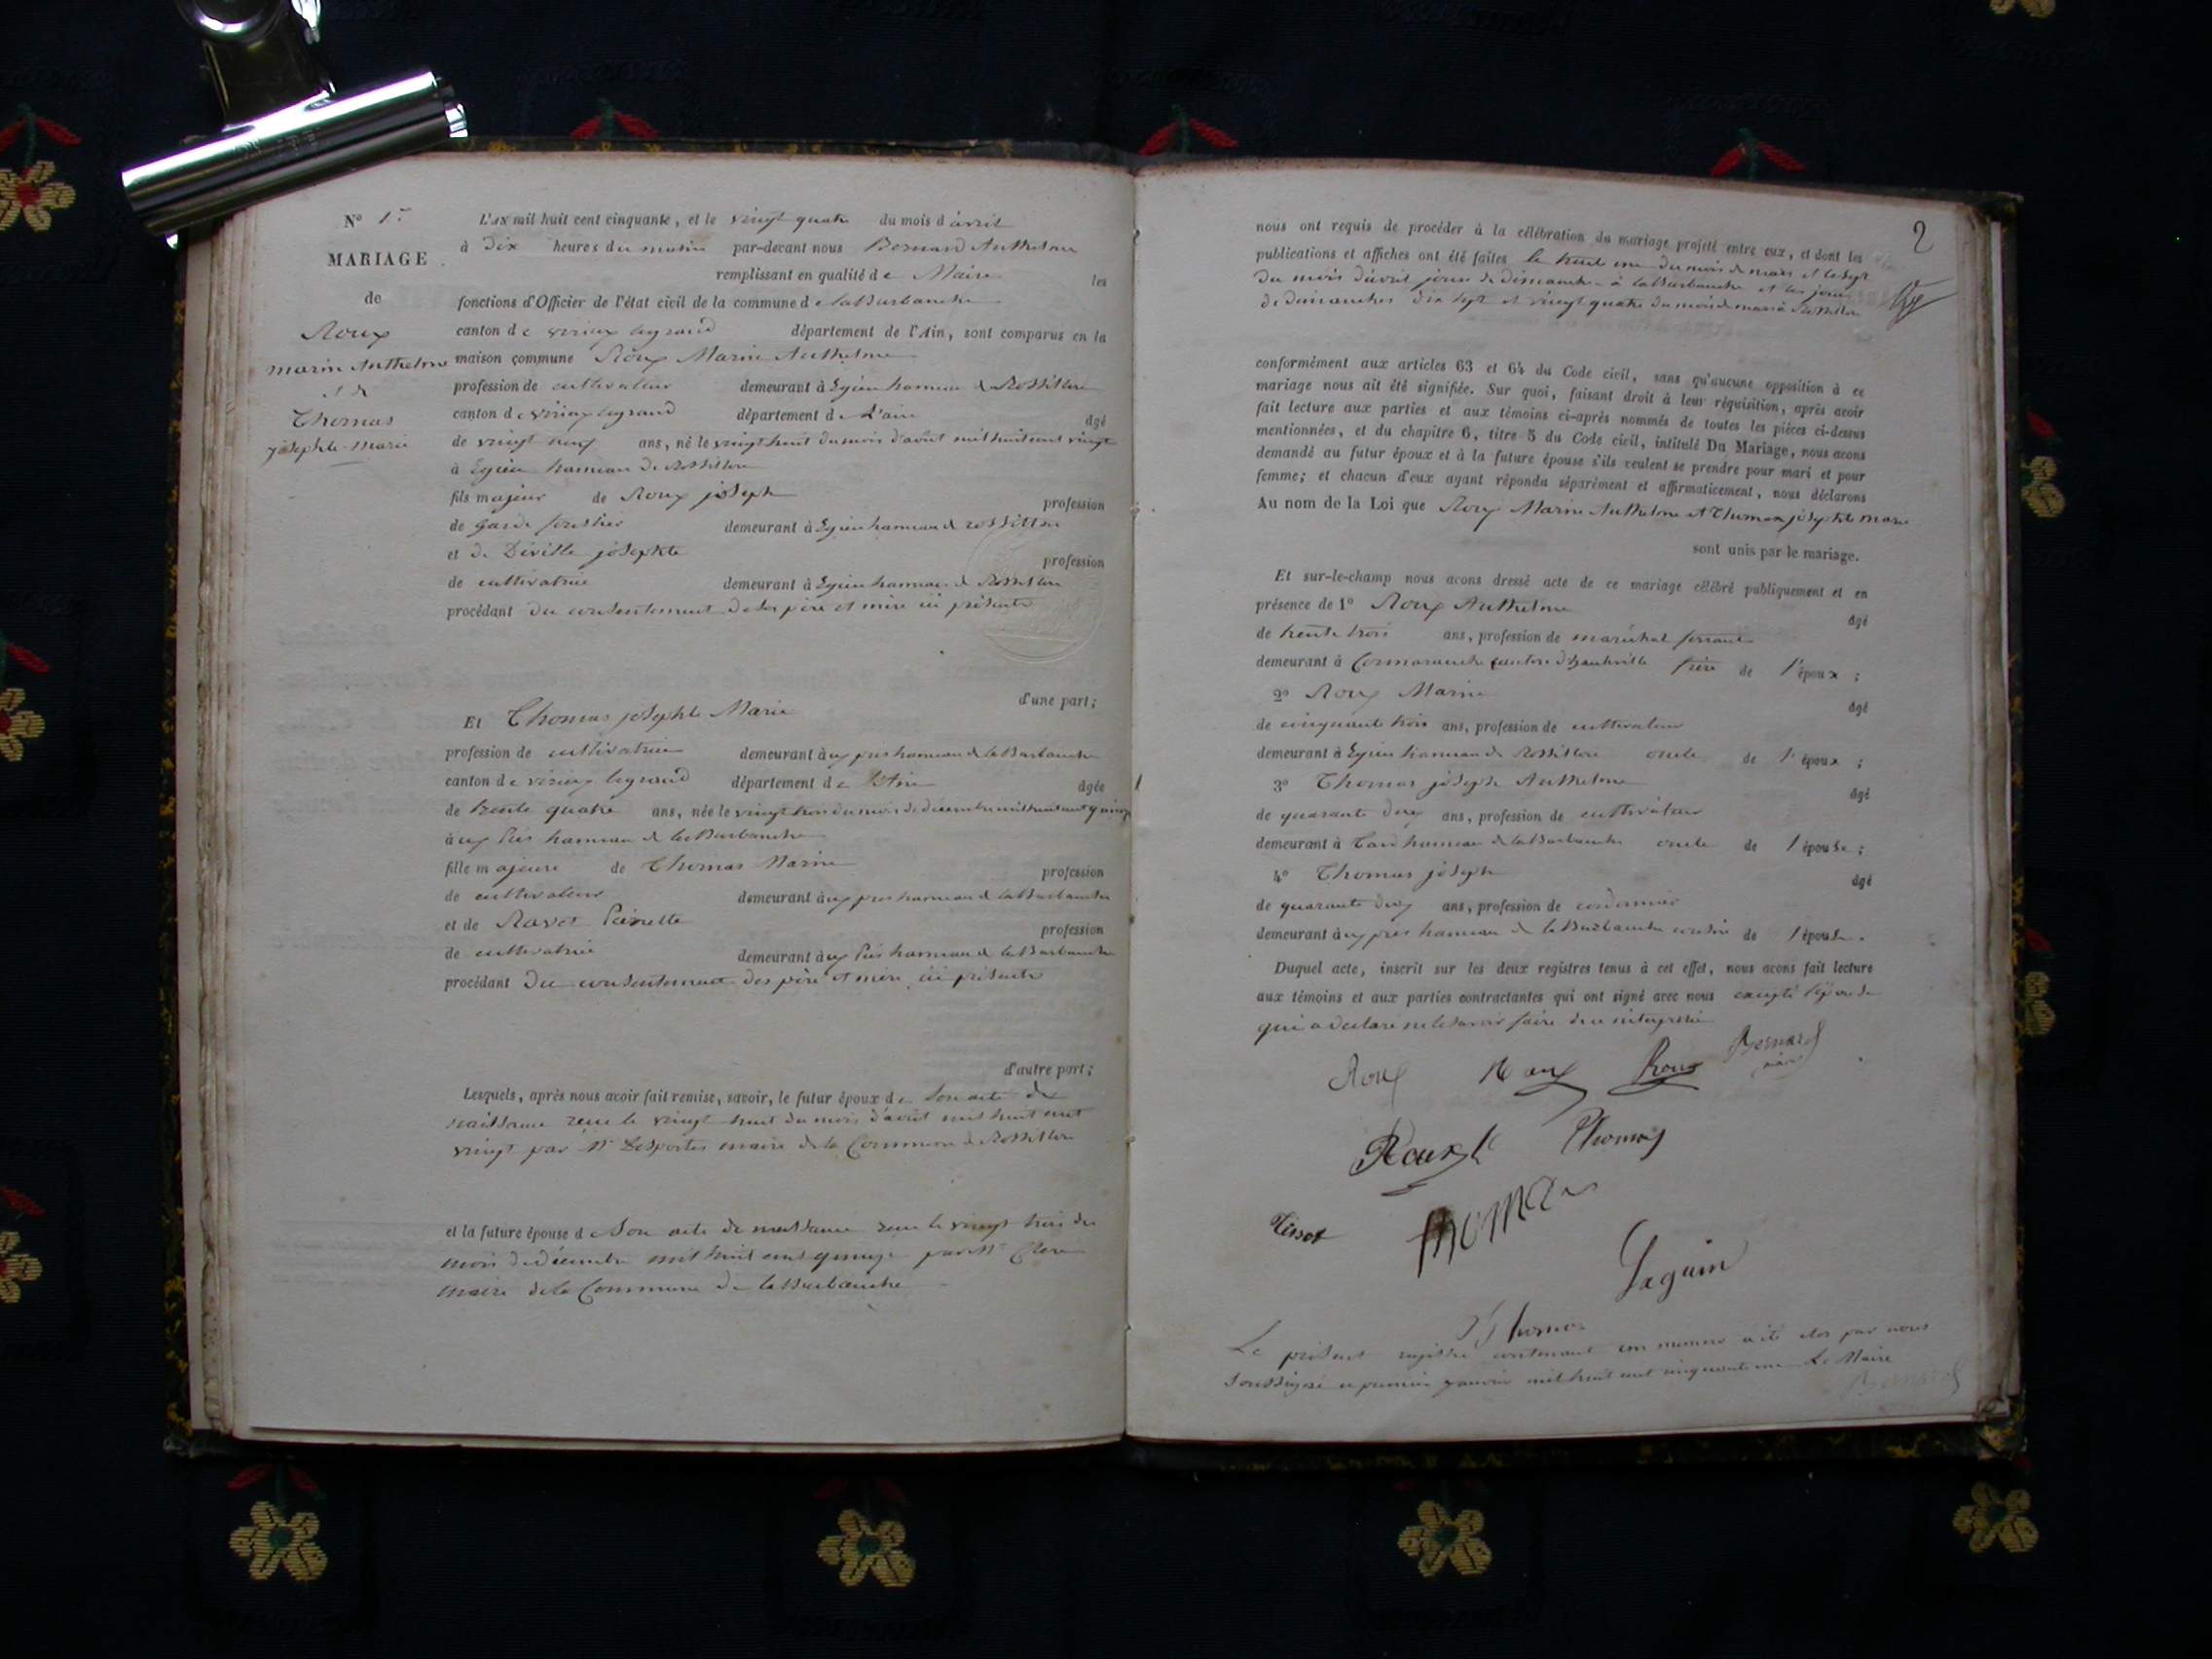 N° 1er
MARIAGE
de
Roux
marin Anthelme
et de
Thomas
josephte marie
L'AN mil huit cent cinquante, et le vingt quatre du mois d'avril
à Dix heures du matin par-devant nous Bernard Anthelme
remplissant en qualité de Maire les
fonctions d'Officier de l'état civil de la commune de la Burbanche
canton de virieu legrand département de l'Ain, sont comparus en la
maison commune Roux Marin Anthelme
profession de cultivateur demeurant à Egieu hameau de Rossillon
canton de virieu legrand département de L'ain âgé
de vingt neuf ans, né le vingt huit du mois d'août mil huit cent vingt
à Egieu hameau de Rossillon
fils majeur de Roux joseph profession
de garde forestier demeurant à Egieu hameau de rossillon
et de Déville josephte profession
de cultivatrice demeurant à Egieu hameau de Rossillon
procédant du consentement de ses père et mère ici présents
d'une part;
Et Thomas josephte Marie
profession de cultivatrice demeurant aux prés hameau de la Burbanche
canton de virieu legrand département de L'Ain âgée
de trente quatre ans, née le vingt trois du mois de décembre mil huit cent quinze
à ux Prés hameau de la Burbanche
fille majeure de Thomas Marin profession
de cultivateur demeurant aux prés hameau de la Burbanche
et de Ravet Pierrette profession
de cultivatrice demeurant aux Prés hameau de la Burbanche
procédant du consentement des père et mère ici présents
d'autre part;
Lesquels, après nous avoir fait remise, savoir, le futur époux de Son acte de
naissance reçu le vingt huit du mois d'août mil huit cent
vingt par Mr Desportes maire de la Commune de Rossillon
et la future épouse de Son acte de naissance reçu le vingt trois du
mois de décembre mil huit cent quinze par Mr
maire de la Commune de la Burbanche
2
nous ont requis de procéder à la célébration du mariage projeté entre eux, et dont les
publications et affiches ont été faites le trente une du mois de mars et le sept
du mois d'avril jours de dimanche à la Burbanche et les jours
de dimanches dix sept et vingt quatre du mois de mars à Rossillon
conformément aux articles 63 et 64 du Code civil, sans qu'aucune opposition à ce
mariage nous ait été signifiée. Sur quoi, faisant droit à leur réquisition, après avoir
fait lecture aux parties et aux témoins ci-après nommés de toutes les pièces ci-dessus
mentionnées, et du chapitre 6, titre 5 du Code civil, intitulé Du Mariage, nous avons
demandé au futur époux et à la future épouse s'ils veulent se prendre pour mari et pour
femme; et chacun d'eux ayant répondu séparément et affirmativement, nous déclarons
Au nom de la Loi que Roux Marin Anthelme et Thomas josephte marie
sont unis par le mariage.
Et sur-le-champ nous avons dressé acte de ce mariage célébré publiquement et en
présence de 1° Roux Anthelme âgé
de trente trois ans, profession de maréchal ferrant
demeurant à Cormaranche canton d'hauteville frère de l'époux;
2° Roux Marin âgé
de cinquante trois ans, profession de cultivateur
demeurant à Egieu hameau de Rossillon oncle de l'époux;
3° Thomas joseph Anthelme âgé
de quarante deux ans, profession de cultivateur
demeurant à hameau de la Burbanche oncle de l'épouse;
4° Thomas joseph âgé
de quarante deux ans, profession de cordonnier
demeurant aux prés hameau de la Burbanche cousin de l'épouse.
Duquel acte, inscrit sur les deux registres tenus à cet effet, nous avons fait lecture
aux témoins et aux parties contractantes qui ont signé avec nous excepté l'épouse
qui a déclaré ne le savoir faire de ce interpellée
Roux Roux Roux Bernard
maire
Roux Thomas
Tissot Thomas
Thomas
Le présent registre contenant un mariage a été clos par nous
soussigné ce premier janvier mil huit cent cinquante un Le Maire
Bernard